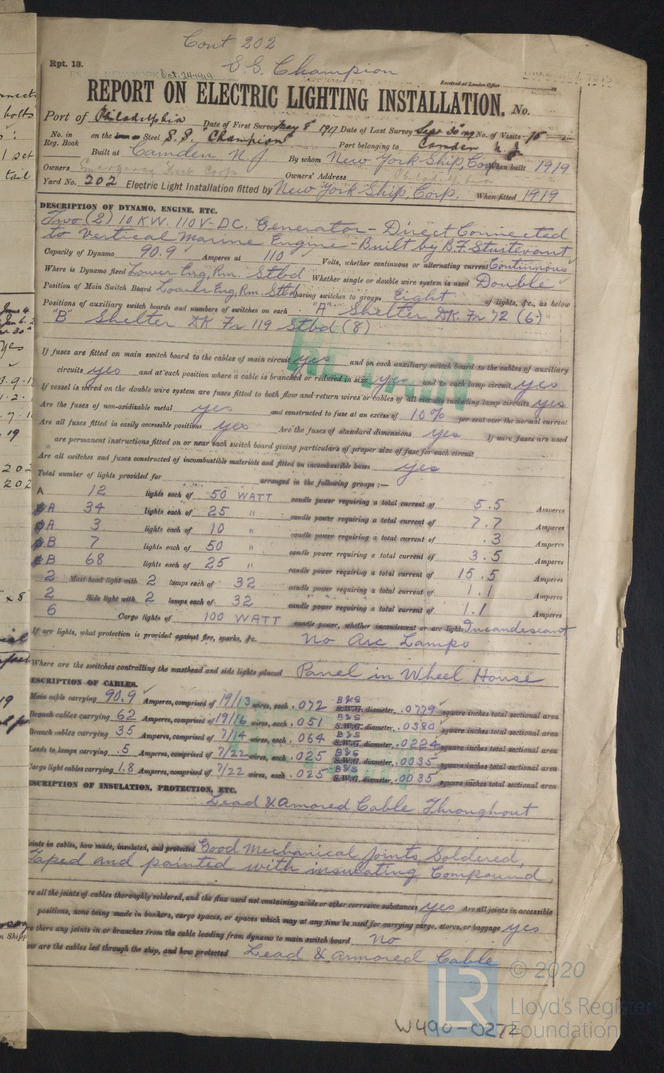 Cont 202
S.S. Champion
Rpt. 13.
Oct. 24 1919
Received at London Office
REPORT ON ELECTRIC LIGHTING INSTALLATION. No.
Port of Philadelphia Date of First Survey May 8 1917 Date of Last Survey Sept 30 No. of Visits 15
No. in Reg. Book on the Steel S.S. "Champion" Port belonging to Camden N.J.
Built at Camden N.J. By whom New York Ship. Corp When built 1919
Owners Owners' Address Philadelphia
Yard No. 202 Electric Light Installation fitted by New York Ship. Corp. When fitted 1919
DESCRIPTION OF DYNAMO, ENGINE, ETC.
Two (2) 10 KW. 110 V-DC. Generator - Direct Connected
to Vertical Marine Engine - Built by B.F. Sturtevant
Capacity of Dynamo 90.9 Amperes at 110 Volts, whether continuous or alternating current Continuous
Where is Dynamo fixed Lower Eng. Rm. Stbd Whether single or double wire system is used Double
Position of Main Switch Board Lower Eng. Rm. Stbd having switches to groups Eight of lights, &c., as below
Positions of auxiliary switch boards and numbers of switches on each "A" Shelter DK Fr 72 (6)
"B" Shelter DK Fr 119 Stbd (8)
If fuses are fitted on main switch board to the cables of main circuit yes and on each auxiliary switch board to the cables of auxiliary
circuits yes and at each position where a cable is branched or reduced in size yes and to each lamp circuit yes
If vessel is wired on the double wire system are fuses fitted to both flow and return wires or cables of all circuits including lamp circuits yes
Are the fuses of non-oxidizable metal yes and constructed to fuse at an excess of 10% per cent over the normal current
Are all fuses fitted in easily accessible positions yes Are the fuses of standard dimensions yes If wire fuses are used
are permanent instructions fitted on or near each switch board giving particulars of proper size of fuse for each circuit
Are all switches and fuses constructed of incombustible materials and fitted on incombustible bases yes
Total number of lights provided for arranged in the following groups :—
A 12 lights each of 50 WATT candle power requiring a total current of 5.5 Amperes
A 34 lights each of 25 " candle power requiring a total current of 7.7 Amperes
A 3 lights each of 10 " candle power requiring a total current of .3 Amperes
B 7 lights each of 50 " candle power requiring a total current of 3.5 Amperes
B 68 lights each of 25 " candle power requiring a total current of 15.5 Amperes
2 Mast head light with 2 lamps each of 32 candle power requiring a total current of 1.1 Amperes
2 Side light with 2 lamps each of 32 candle power requiring a total current of 1.1 Amperes
6 Cargo lights of 100 WATT candle power, whether incandescent or arc lights Incandescent
If arc lights, what protection is provided against fire, sparks, &c. No Arc Lamps
Where are the switches controlling the masthead and side lights placed Panel in Wheel House
DESCRIPTION OF CABLES.
Main cable carrying 90.9 Amperes, comprised of 19/13 wires, each .072 B&S S.W.G. diameter, .0779 square inches total sectional area
Branch cables carrying 62 Amperes, comprised of 19/16 wires, each .051 B&S S.W.G. diameter, .0380 square inches total sectional area
Branch cables carrying 35 Amperes, comprised of 7/14 wires, each .064 B&S S.W.G. diameter, .0224 square inches total sectional area
Leads to lamps carrying .5 Amperes, comprised of 7/22 wires, each .025 B&S S.W.G. diameter, .0035 square inches total sectional area
Cargo light cables carrying 1.8 Amperes, comprised of 7/22 wires, each .025 B&S S.W.G. diameter, .0035 square inches total sectional area
DESCRIPTION OF INSULATION, PROTECTION, ETC.
Lead & Amored Cable Throughout
Joints in cables, how made, insulated, and protected Good Mechanical Joints, Soldered,
Taped and painted with insulating Compound
Are all the joints of cables thoroughly soldered, and the flux used not containing acids or other corrosive substances yes Are all joints in accessible
positions, none being made in bunkers, cargo spaces, or spaces which may at any time be used for carrying cargo, stores, or baggage yes
Are there any joints in or branches from the cable leading from dynamo to main switch board no
How are the cables led through the ship, and how protected Lead & Armored Cable
W490-0272
LR © 2020
Lloyd's Register
Foundation